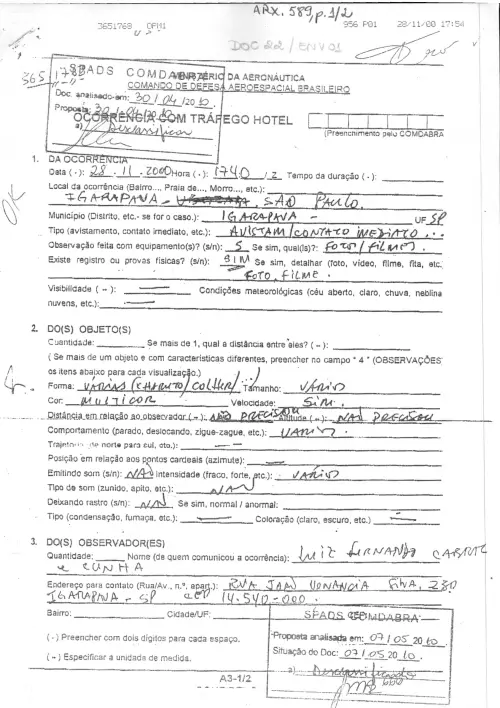 ARX. 589, p. 1/2
3651768 COM1 956 P01 28/11/00 17:54
DOC 22 / ENV 01
SPADS COMDABRA
MINISTÉRIO DA AERONÁUTICA
COMANDO DE DEFESA AEROESPACIAL BRASILEIRO
Doc. analisado em: 30 / 04 /2010
Proposta: 30/04/2010
OCORRÊNCIA COM TRÁFEGO HOTEL
a) Desclassificar
(Preenchimento pelo COMDABRA)
OK
1. DA OCORRÊNCIA
Data (·): 28 . 11 . 2000 Hora (·): 1740 / Z Tempo da duração (·):
Local da ocorrência (Bairro..., Praia de..., Morro..., etc.):
IGARAPAVA - SÃO PAULO.
Município (Distrito, etc.- se for o caso.): IGARAPAVA - UF SP
Tipo (avistamento, contato imediato, etc.): AVISTAM/CONTATO IMEDIATO ...
Observação feita com equipamento(s)? (s/n): S Se sim, qual(is)?: FOTO/FILME?
Existe registro ou provas físicas? (s/n): SIM Se sim, detalhar (foto, vídeo, filme, fita, etc.
FOTO, FILME .
Visibilidade ( ~ ): Condições meteorológicas (céu aberto, claro, chuva, neblina
nuvens, etc.):
2. DO(S) OBJETO(S)
Cuantidade: Se mais de 1, qual a distância entre eles? ( ~ ):
( Se mais de um objeto e com características diferentes, preencher no campo " 4 " (OBSERVAÇÕES
os itens abaixo para cada visualização.)
Forma: VÁRIAS (CHARUTO/COLHER/ Tamanho: VÁRIO
Cor: MULTICOR Velocidade: SIM.
Distância em relação ao observador ( ~ ): NÃO PRECISOU Altitude ( ~ ): NÃO PRECISOU
Comportamento (parado, deslocando, zigue-zague, etc.): VÁRIO .
Trajetória (de norte para sul, etc.):
Posição em relação aos pontos cardeais (azimute):
Emitindo som (s/n): NÃO Intensidade (fraco, forte, etc.): VÁRIO
Tipo de som (zunido, apito, etc.): NÃO
Deixando rastro (s/n): NÃO Se sim, normal / anormal:
Tipo (condensação, fumaça, etc.): Coloração (claro, escuro, etc.)
3. DO(S) OBSERVADOR(ES)
Quantidade: Nome (de quem comunicou a ocorrência): LUIZ FERNANDO
E CUNHA
Endereço para contato (Rua/Av., n.º, apart.): RUA JOÃO FINA, 230
IGARAPAVA - SP CEP 14.540-000 .
Bairro: Cidade/UF:
SPADS COMDABRA
(·) Preencher com dois dígitos para cada espaço.
Proposta analisada em: 07 / 05 20 10 .
(~) Especificar a unidade de medida.
Situação do Doc: 07 / 05 20 10 .
a) Desclassificado
A3-1/2